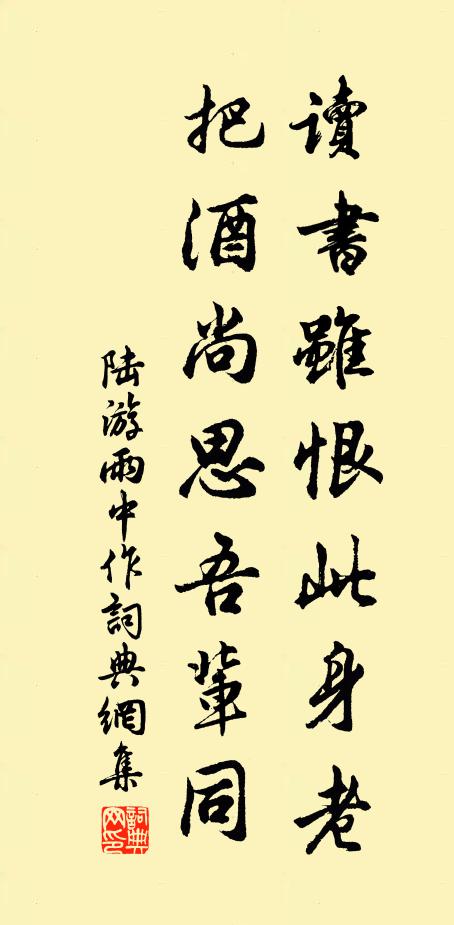 讀書雖恨此身老
把酒尚思吾輩同
陸游雨中作詞典網集
詞典網印